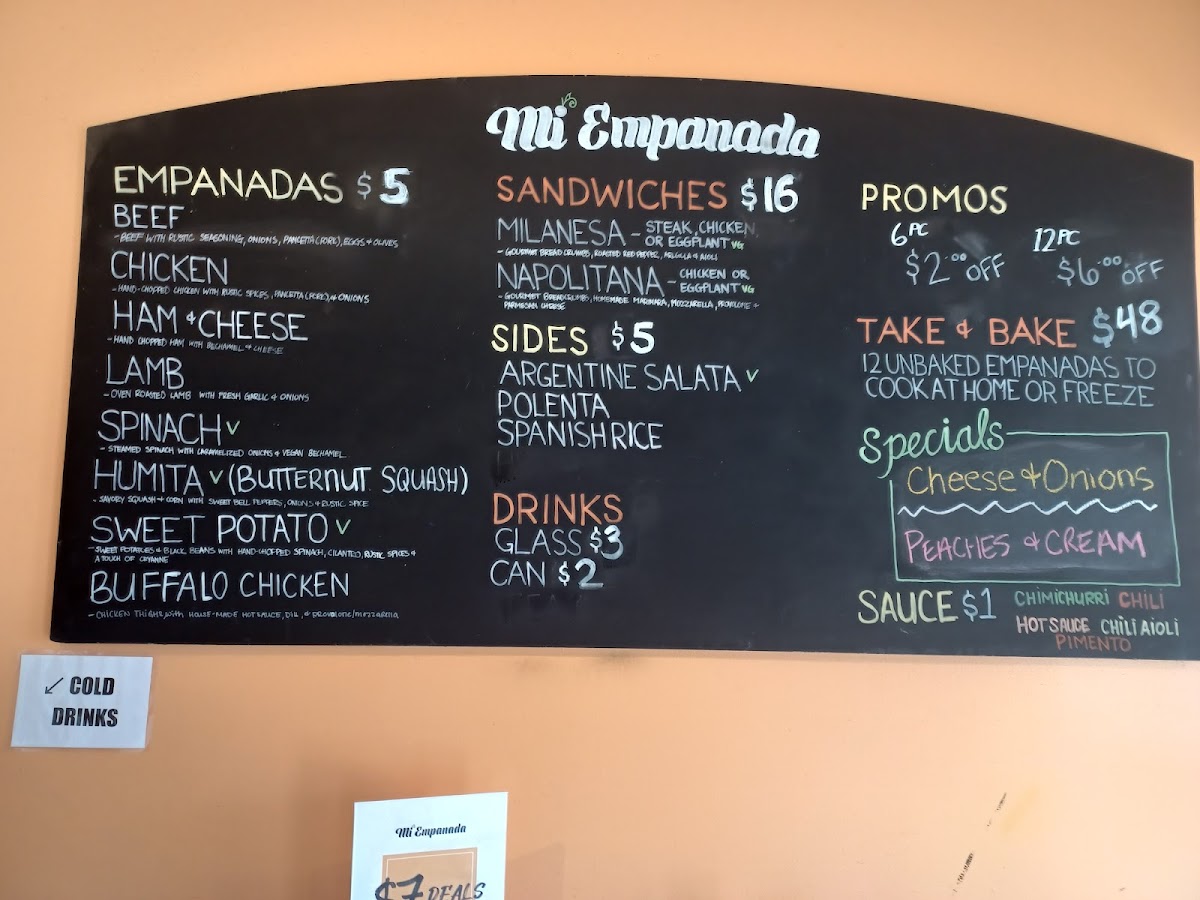 Mi Empanada
EMPANADAS $5
BEEF
- BEEF WITH RUSTIC SEASONING, ONIONS, PANCETTA (PORK), EGGS & OLIVES
CHICKEN
- HAND-CHOPPED CHICKEN WITH RUSTIC SPICES, PANCETTA (PORK), & ONIONS
HAM & CHEESE
- HAND CHOPPED HAM WITH BECHAMEL & CHEESE
LAMB
- OVEN ROASTED LAMB WITH FRESH GARLIC & ONIONS
SPINACH V
- STEAMED SPINACH WITH CARAMELIZED ONIONS & VEGAN BECHAMEL
HUMITA V (BUTTERNUT SQUASH)
- SAVORY SQUASH & CORN WITH SWEET BELL PEPPERS, ONIONS & RUSTIC SPICE
SWEET POTATO V
- SWEET POTATOES & BLACK BEANS WITH HAND-CHOPPED SPINACH, CILANTRO, RUSTIC SPICES &
A TOUCH OF CAYANNE
BUFFALO CHICKEN
- CHICKEN THIGHS with HOUSE-MADE HOT SAUCE, DILL, & provolone/mozzarella
SANDWICHES $16
MILANESA - STEAK, CHICKEN,
OR EGGPLANT VG
- GOURMET BREAD CRUMBS, ROASTED RED PEPPER, ARUGULA & AIOLI
NAPOLITANA - CHICKEN OR
EGGPLANT VG
- GOURMET BREADCRUMBS, HOMEMADE MARINARA, MOZZARELLA, PROVLONE +
PARMESAN CHEESE
SIDES $5
ARGENTINE SALATA V
POLENTA
SPANISH RICE
DRINKS
GLASS $3
CAN $2
PROMOS
6PC 12PC
$2.00 OFF $6.00 OFF
TAKE & BAKE $48
12 UNBAKED EMPANADAS TO
COOK AT HOME OR FREEZE
Specials
Cheese & Onions
PEACHES & CREAM
SAUCE $1 CHIMICHURRI CHILI
HOT SAUCE CHILI AIOLI
PIMENTO
↙ COLD
DRINKS
Mi Empanada
$7 DEALS